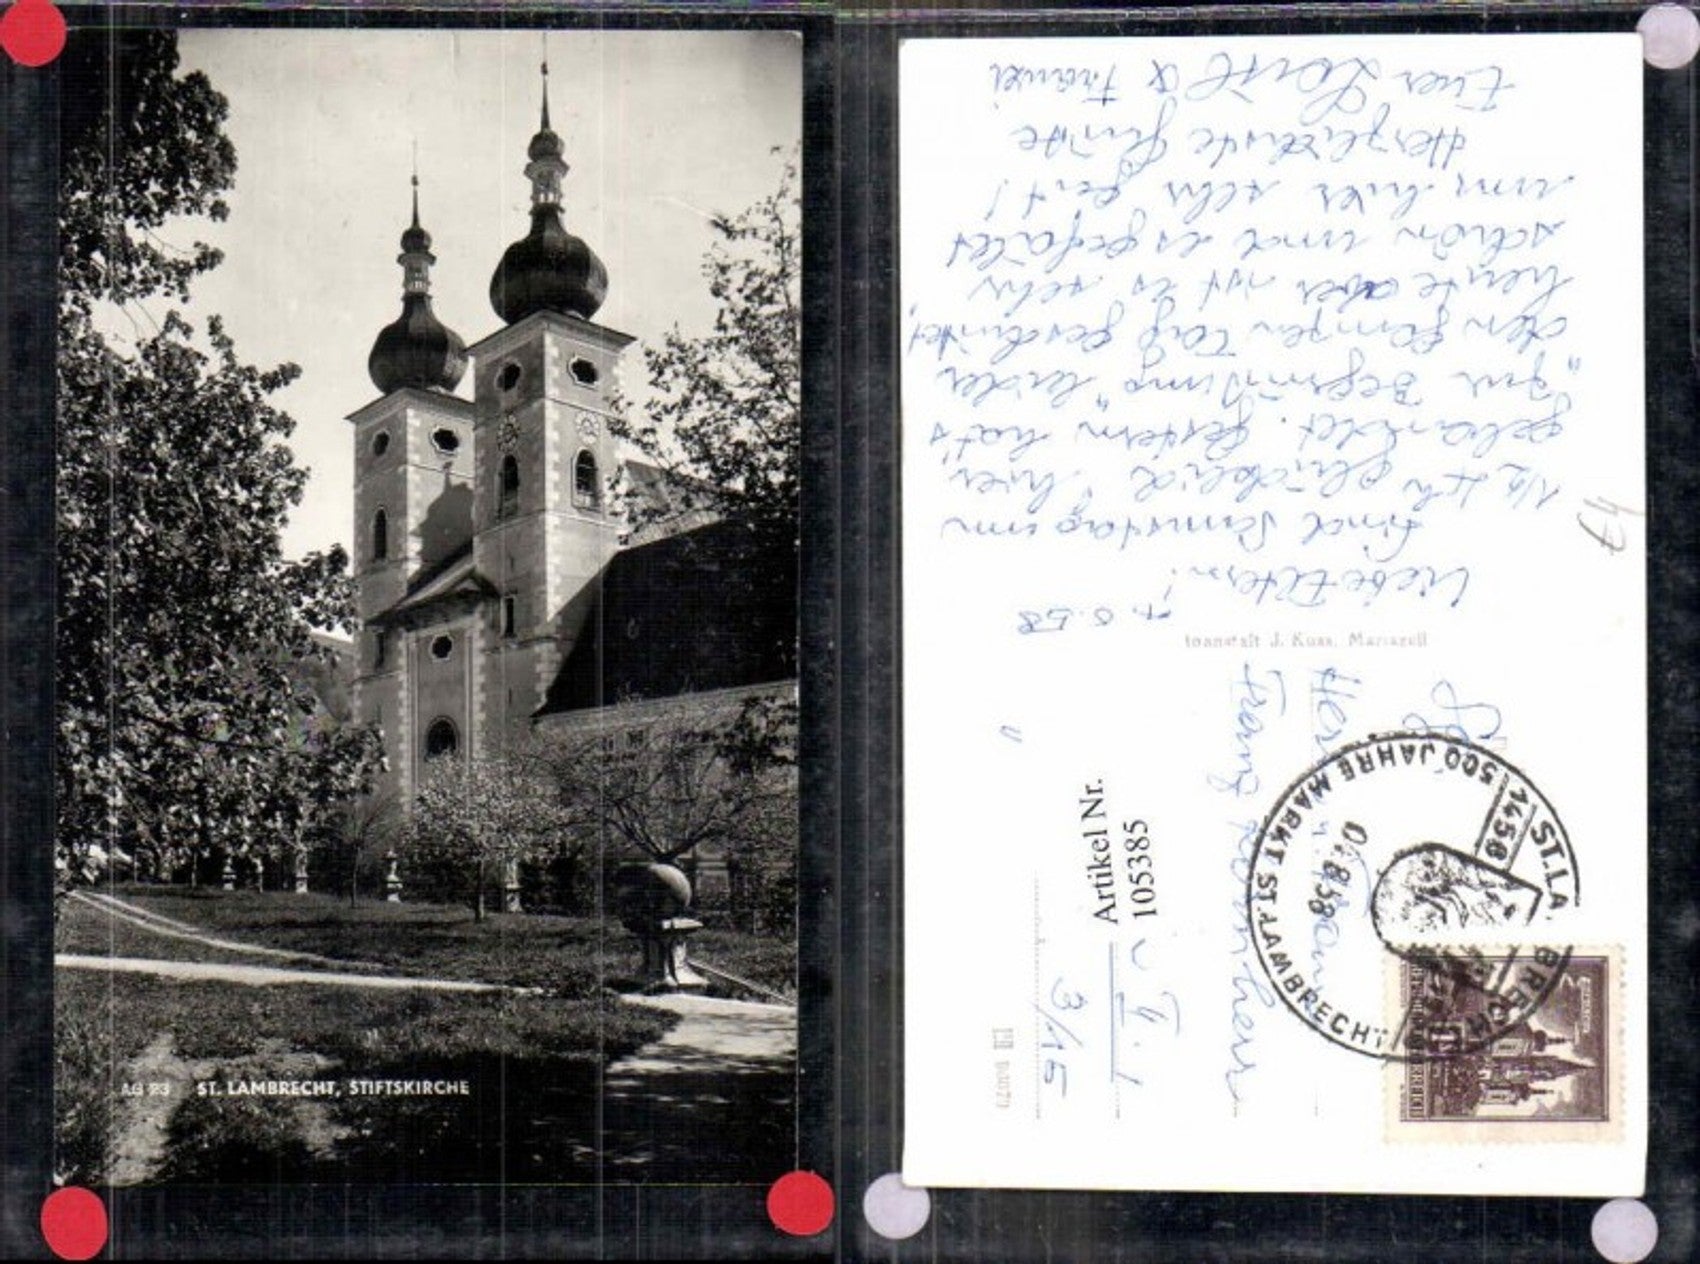 AG 23 ST. LAMBRECHT, STIFTSKIRCHE
7.8.58
Liebe Eltern!
Sind Samstag um
1/2 glücklich hier
gelandet. Gestern hat's
"zur Begrüßung" leider
den ganzen Tag geschüttet,
heute aber ist es sehr
schön und es gefällt
uns hier sehr gut!
Herzlichste Grüße
Euer & Franzi
J. Kuss, Mariazell
Franz
3/15
Artikel Nr.
105385
500 JAHRE MARKT ST. LAMBRECHT
1458